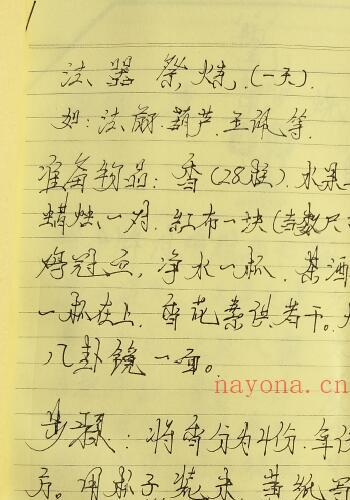 法器祭炼.(一天).
如:法蔚.葫芦.玉佩等.
准备物品:香(28柱).水果
蜡烛一对.红布一块(当数尺
鸡冠血,净水一杯,茶酒
一杯在上.香花素供若干。
八卦镜一面。
nayona.cn
步骤:将香分为4份.每份
方。用 米.黄纸写